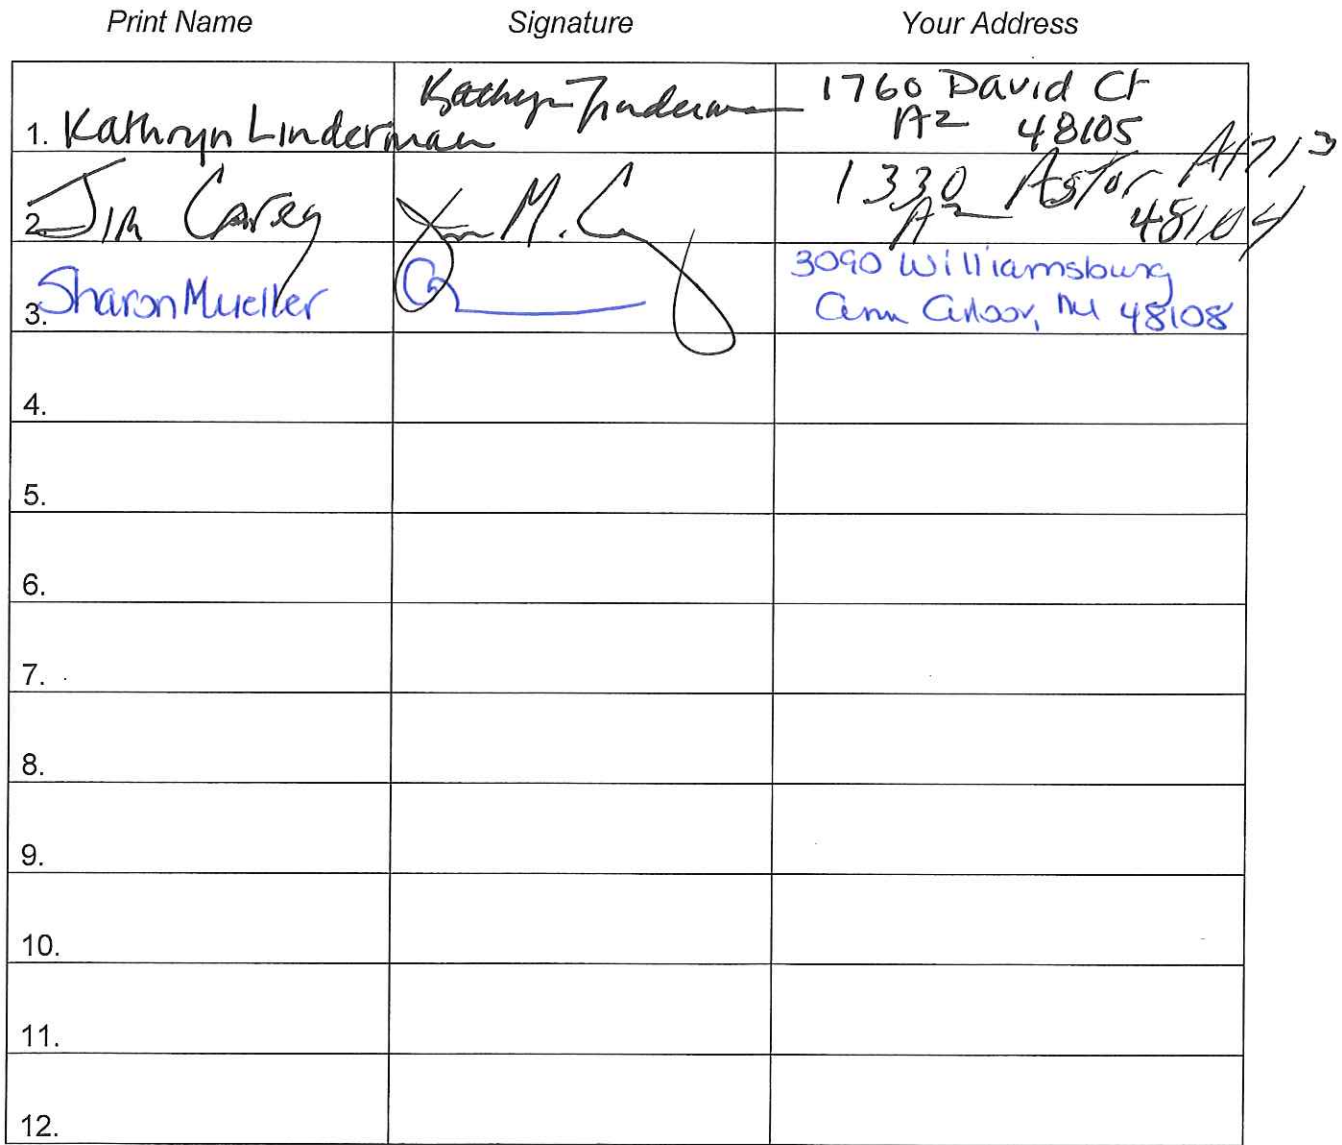 Print Name Signature Your Address
1. Kathryn Linderman Kathryn Linderman 1760 David Ct
A2 48105
2. Jim Carey Jim M. C 1330 Astor
A2 48104
3. Sharon Mueller 3090 Williamsburg
Ann Arbor, MI 48108
4.
5.
6.
7.
8.
9.
10.
11.
12.